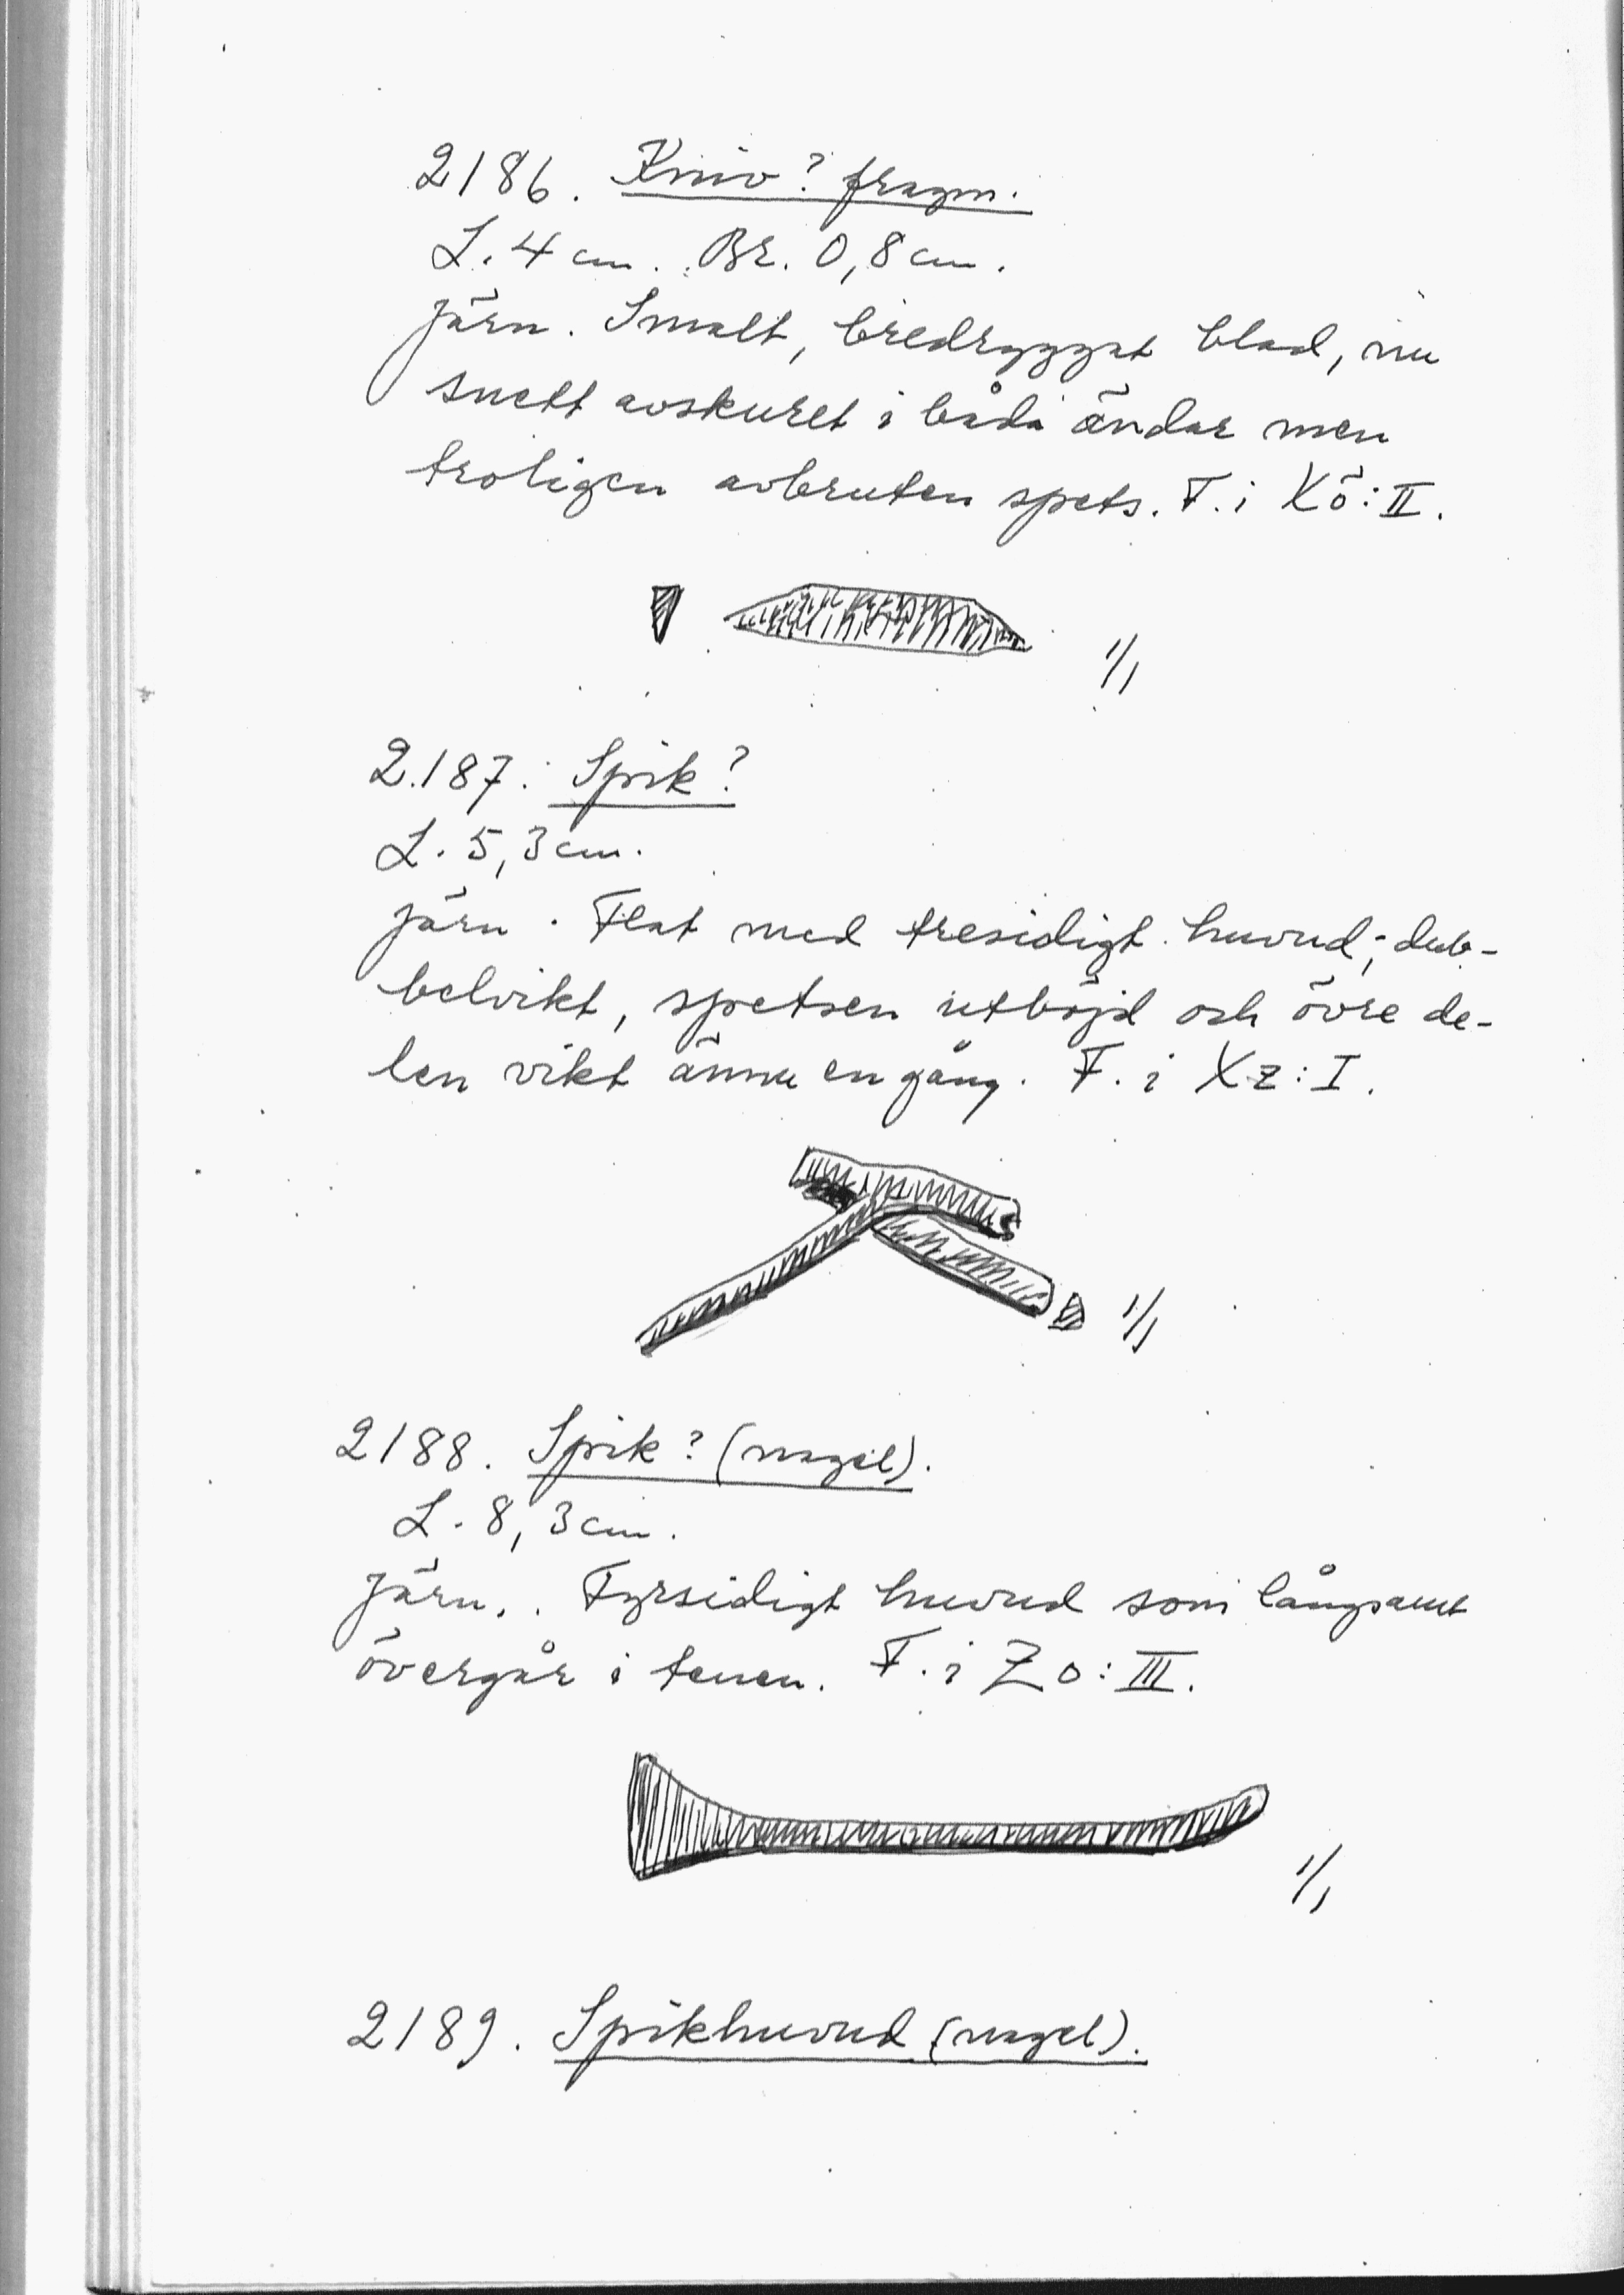 2186. Kniv? fragm.
L. 4 cm. Br. 0,8 cm.
Järn. Smalt, bredryggat blad, nu
snett avskuret i båda ändar men
troligen avbruten spets. F. i Xö:II.
1/1
2187. Spik?
L. 5,3 cm.
Järn. Flat med tresidigt huvud; dub-
belvikt, spetsen utböjd och övre de-
len vikt ännu en gång. F. i Xz:I.
1/1
2188. Spik? (nagel).
L. 8,3 cm.
Järn. Fyrsidigt huvud som långsamt
övergår i tenen. F. i Zo:III.
1/1
2189. Spikhuvud (nagel).